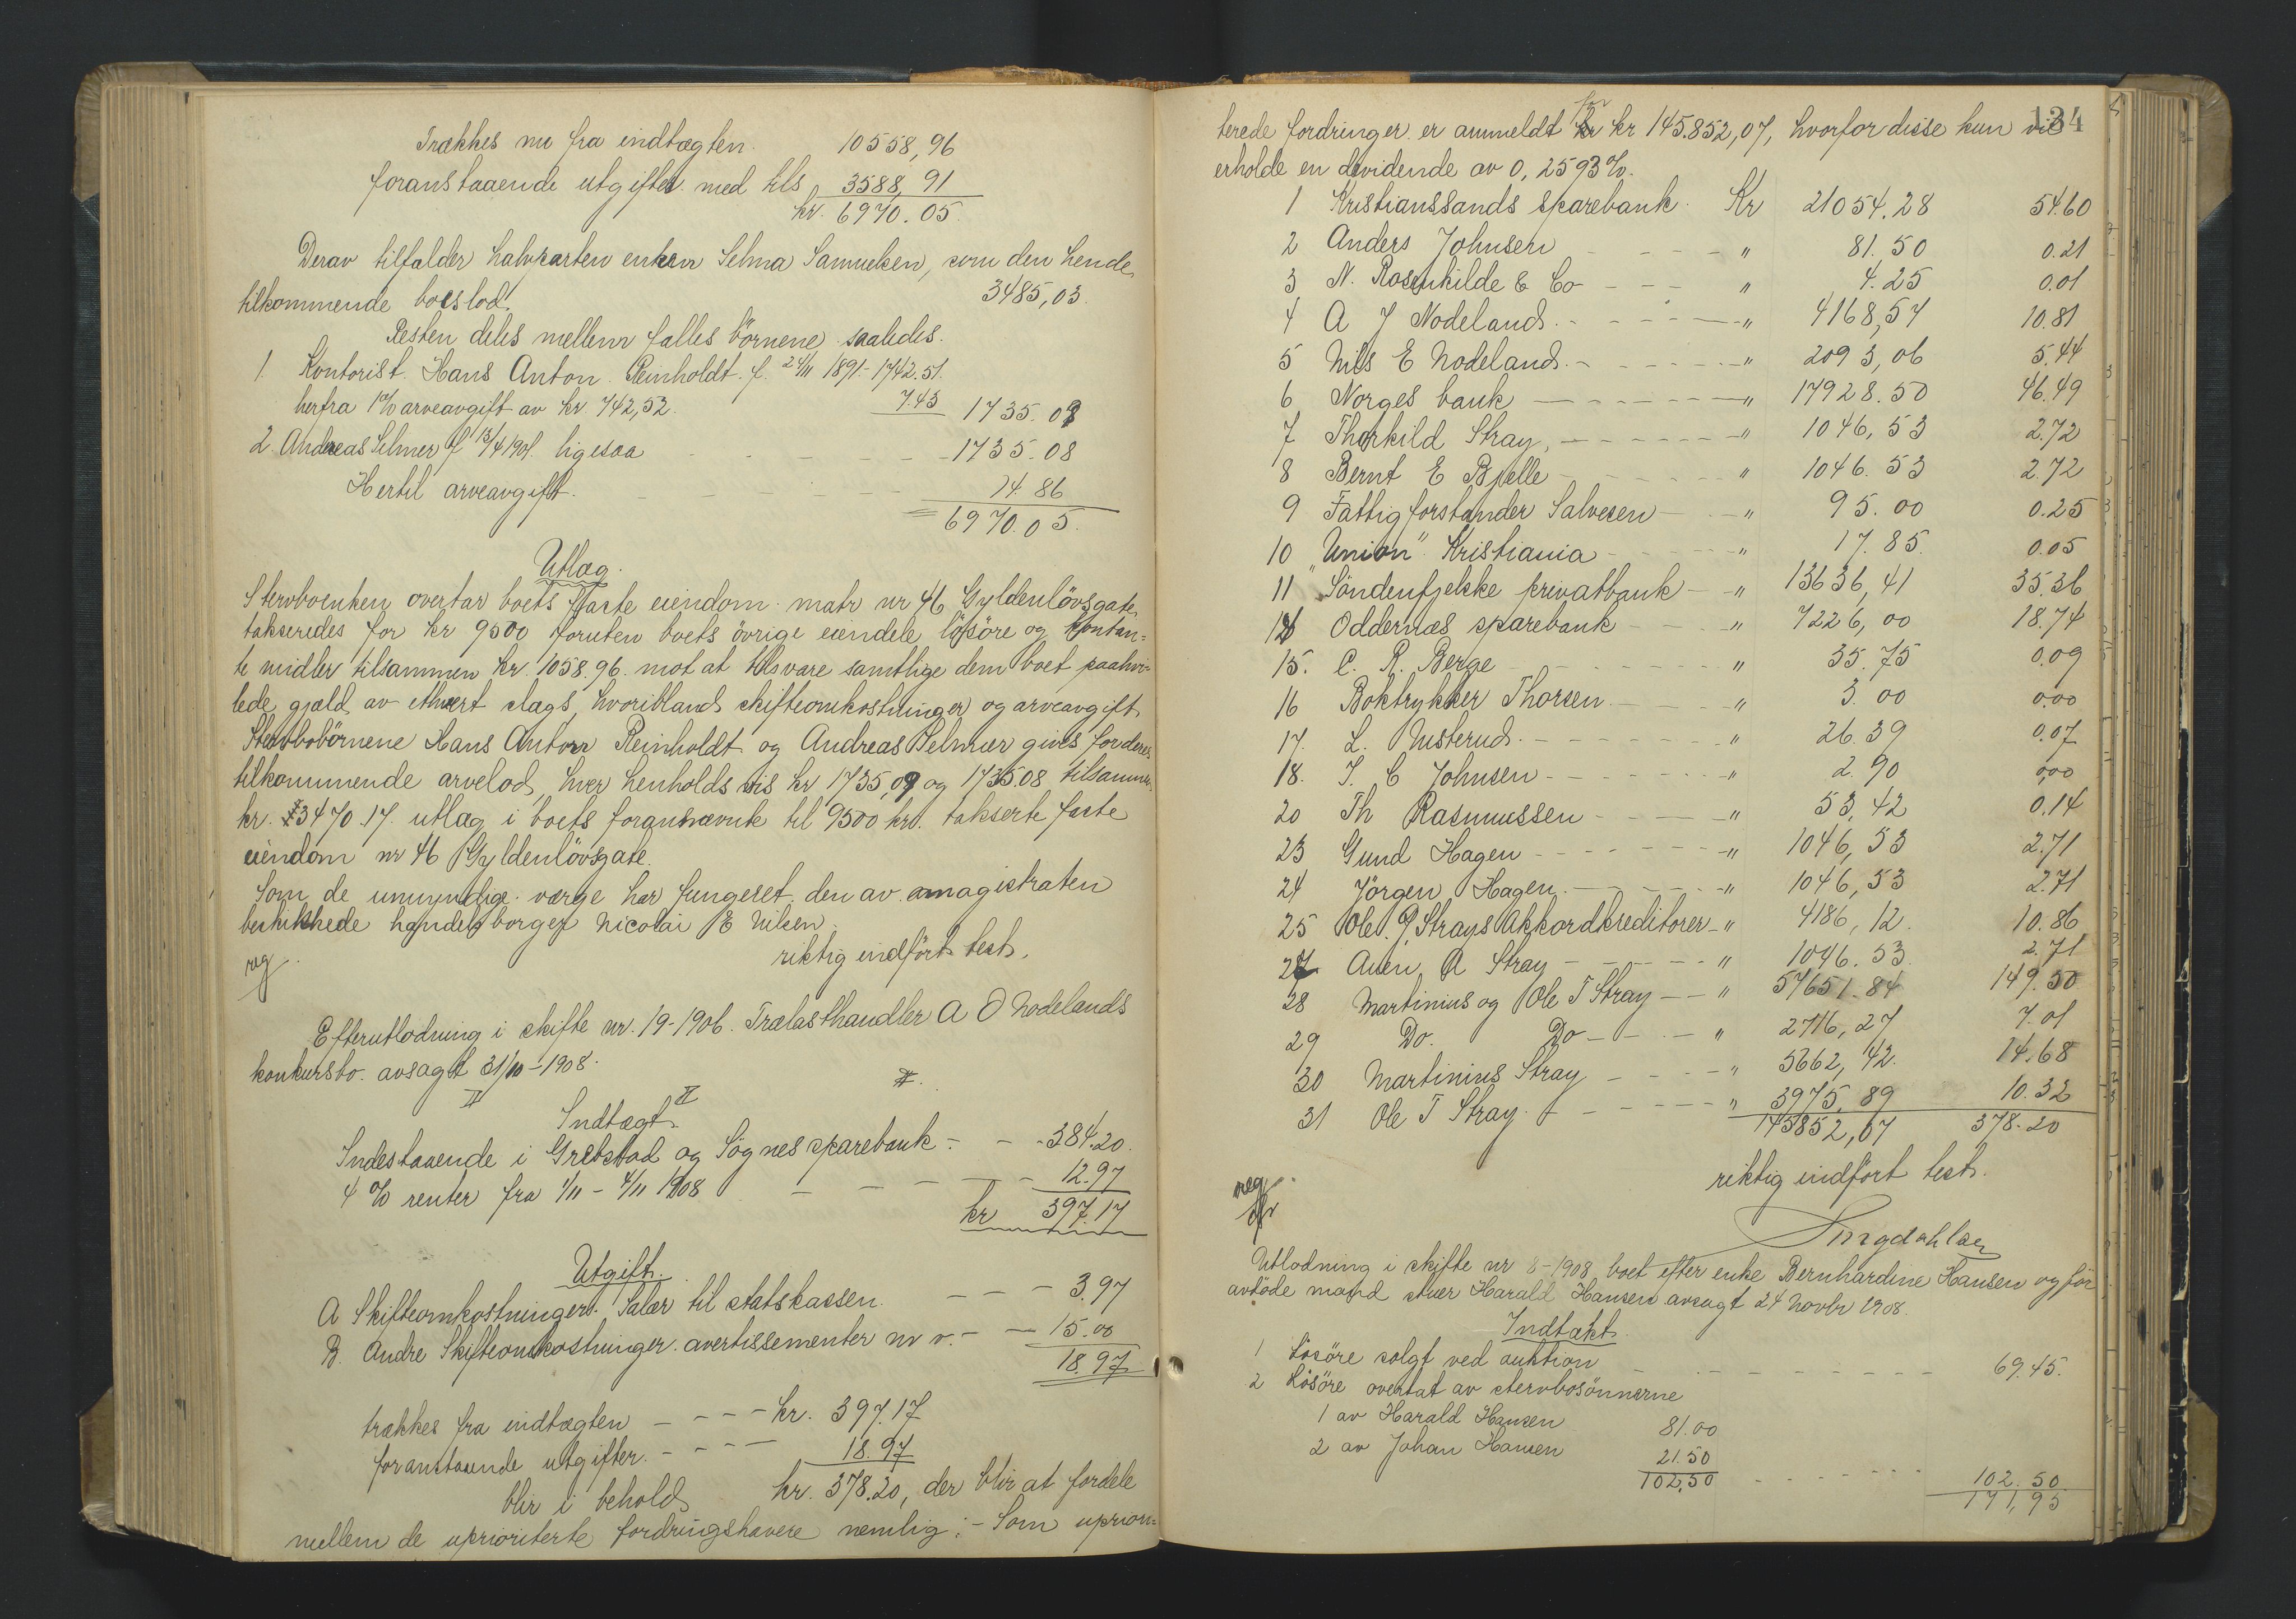 Trækkes nu fra indtægten 10558,96
foranstaaende utgifter med tils 3588,91
kr. 6970.05
Derav tilfalder halvparten enken Selma Samuelsen, som den hende
tilkommende boeslod. 3485,03.
Resten deles mellem fælles børnene saaledes.
1. Kontorist Hans Anton Reinholdt f. 24/11 1891 - 1742.51.
herfra 1% arveavgift av kr 742,52. 7.43 1735.09
2. Andreas Selmer f 13/4 1901. ligesaa - - - - 1735.08
Hertil arveavgift. - - - - - 14.86
6970.05.
Utlæg.
Stervboenken overtar boets faste eiendom matr nr 46 Gyldenløvsgate
takseredes for kr 9500 foruten boets øvrige eiendele løsøre og kontan=
te midler tilsammen kr 1058.96. mot at tilsvare samtlige dem boet paahvi-
lede gjæld av ethvert slags, hvoribland skifteomkostninger og arveavgift.
Stervbobørnene Hans Anton Reinholdt og Andreas Selmer gives for deres
tilkommende arvelod, hver henholdsvis kr 1735,09 og 1735.08, tilsammen
kr. 3470.17. utlæg i boets forannævnte til 9500 kr. takserte faste
eiendom nr 46 Gyldenløvsgate.
Som de umyndige værge har fungeret den av magistraten
beskikkede handelsborger Nicolai E Nilsen.
riktig indført test.
reg
Efterutlodning i skifte nr. 19-1906. Trælasthandler A O Nodelands
konkursbo. avsagt 31/10 - 1908.
Indtægt
Indestaaende i Grebstad og Søgnes sparebank - - - 384.20.
4 % renter fra 1/11 - 4/11 1908 - - - - - 12.97
kr 397.17
Utgift.
A Skifteomkostninger. Salær til statskassen. - - - 3.97
B. Andre Skifteomkostninger. avertissementer m v. - - 15.00
18.97
trækkes fra indtægten - - - - kr. 397.17
foranstaaende utgifter. - - - - 18.97
blir i behold kr. 378.20, der blir at fordele
mellem de uprioriterte fordringshavere nemlig: - Som uprior=
134
terede fordringer er anmeldt for kr 145.852,07, hvorfor disse kun vil
erholde en dividende av 0,2593%.
1 Kristianssands sparebank. Kr 21054.28 54.60
2 Anders Johnsen - - - - " 81.50 0.21
3 N. Rosenkilde & Co - - - " 4.25 0.01
4 A J Nodeland. - - - - - " 4168,54 10.81
5 Nils E Nodeland. - - - - - " 2093,06 5.44
6 Norges bank - - - - - - " 17928.50 46.49
7 Thorkild Stray, - - - - - " 1046,53 2.72
8 Bernt E Bjelle - - - - - " 1046.53 2.72
9 Fattigforstander Salvesen - - " 95.00 0.25
10 "Union" Kristiania - - - - " 17.85. 0.05
11 Søndenfjelske privatbank - - " 13636,41 35.36
14 Oddernæs sparebank - - - " 7226,00 18.74
15. C. R. Berge - - - - - - " 35.75 0.09
16 Boktrykker Thorsen. - - - - " 3.00 0.00
17. L. Musterud. - - - - - - " 26.39 0.07
18. J. C Johnsen - - - - - - " 2.90 0,00
20 Th Rasmussen - - - - - " 53,42 0.14
23 Gund Hagen - - - - - - " 1046,53 2.71
24 Jørgen Hagen. - - - - - " 1046,53 2.71
25 Ole P. Strays Akkordkreditorer - " 4186,12. 10.86
27 Aven A Stray - - - - - " 1046.53. 2.71
28 Martinius og Ole T Stray - - " 57651.84 149.50
29 Do. Do - - - - " 2716,27 7.01
30 Martinius Stray - - - - " 5662,42. 14.68
31 Ole T Stray. - - - - - - " 3975.89 10.32
145852,07 378.20
riktig indført test.
reg
Utlodning i skifte nr 8-1908 boet efter enke Bernhardine Hansen og før
avdøde mand stuer Harald Hansen avsagt 24 Novbr 1908.
Indtækt.
1 Løsøre solgt ved auktion - - - - - - - 69.45.
2 Løsøre overtat av stervbosønnerne
1 av Harald Hansen 81.00
2 av Johan Hansen 21.50
102,50 - - - - - - - 102.50
171,95